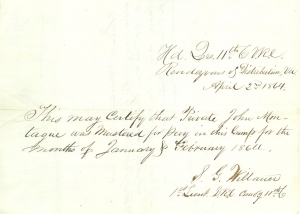 Hd Qrs. 11th Co VRC
Rendezvous of Distribution, Va
April 2nd 1864
This may Certify that Private John Mon-
tague was Mustered for Pay in this Camp for the
months of January & February 1864.
1st Lieut VRC Comdg 11th Co